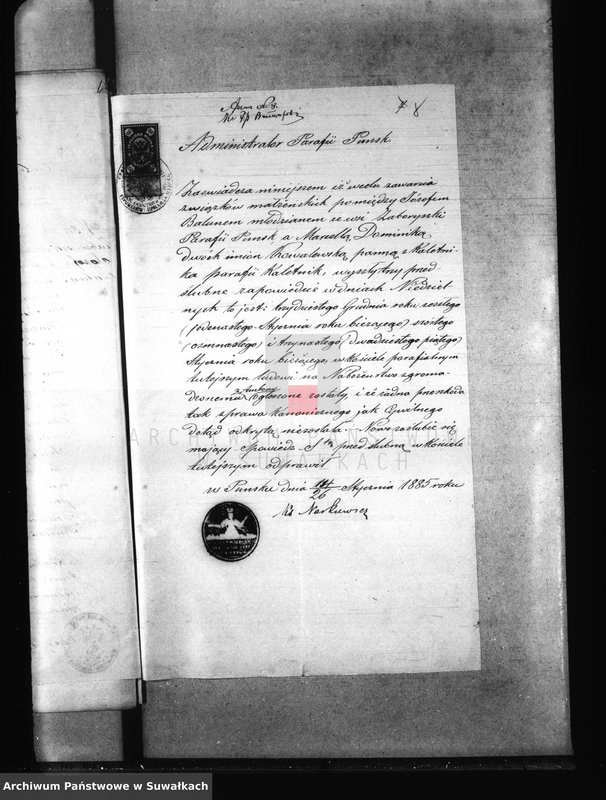 № 8
Administrator Parafii Puńsk
Zaświadcza niniejszem iż wcelu zawarcia
związków małżeńskich pomiędzy Józefem
Balunem młodzianem ze wsi Zaboryszki
Parafii Puńsk a Marcellą Dominiką
dwóch imion Kowalewską panną z Kaletni-
ka parafii Kaletnik, wyszły trzy przed
ślubne zapowiedzie w dniach Niedziel
nych to jest: trzydziestego Grudnia roku zeszłego
(jedenastego Stycznia roku bieżącego) szóstego
(osmnastego) i trzynastego (dwudziestego piątego)
Stycznia roku bieżącego, w kościele parafialnym
tutejszym ludowi na Nabożeństwo zgroma-
dzonemu z Ambony ogłoszone zostały, i że żadna przeszkoda
tak z prawa Kanonicznego jak Cywilnego
dotąd odkrytą niezostała. Nowo zaślubić się
mający Spowiedź S-tą przed ślubną w kościele
tutejszym odprawili
w Puńsku dnia 14/26 Stycznia 1885 roku
Ks Narkiewicz
ARCHIWUM PAŃSTWOWE W
SUWAŁKACH
Archiwum Państwowe w Suwałkach